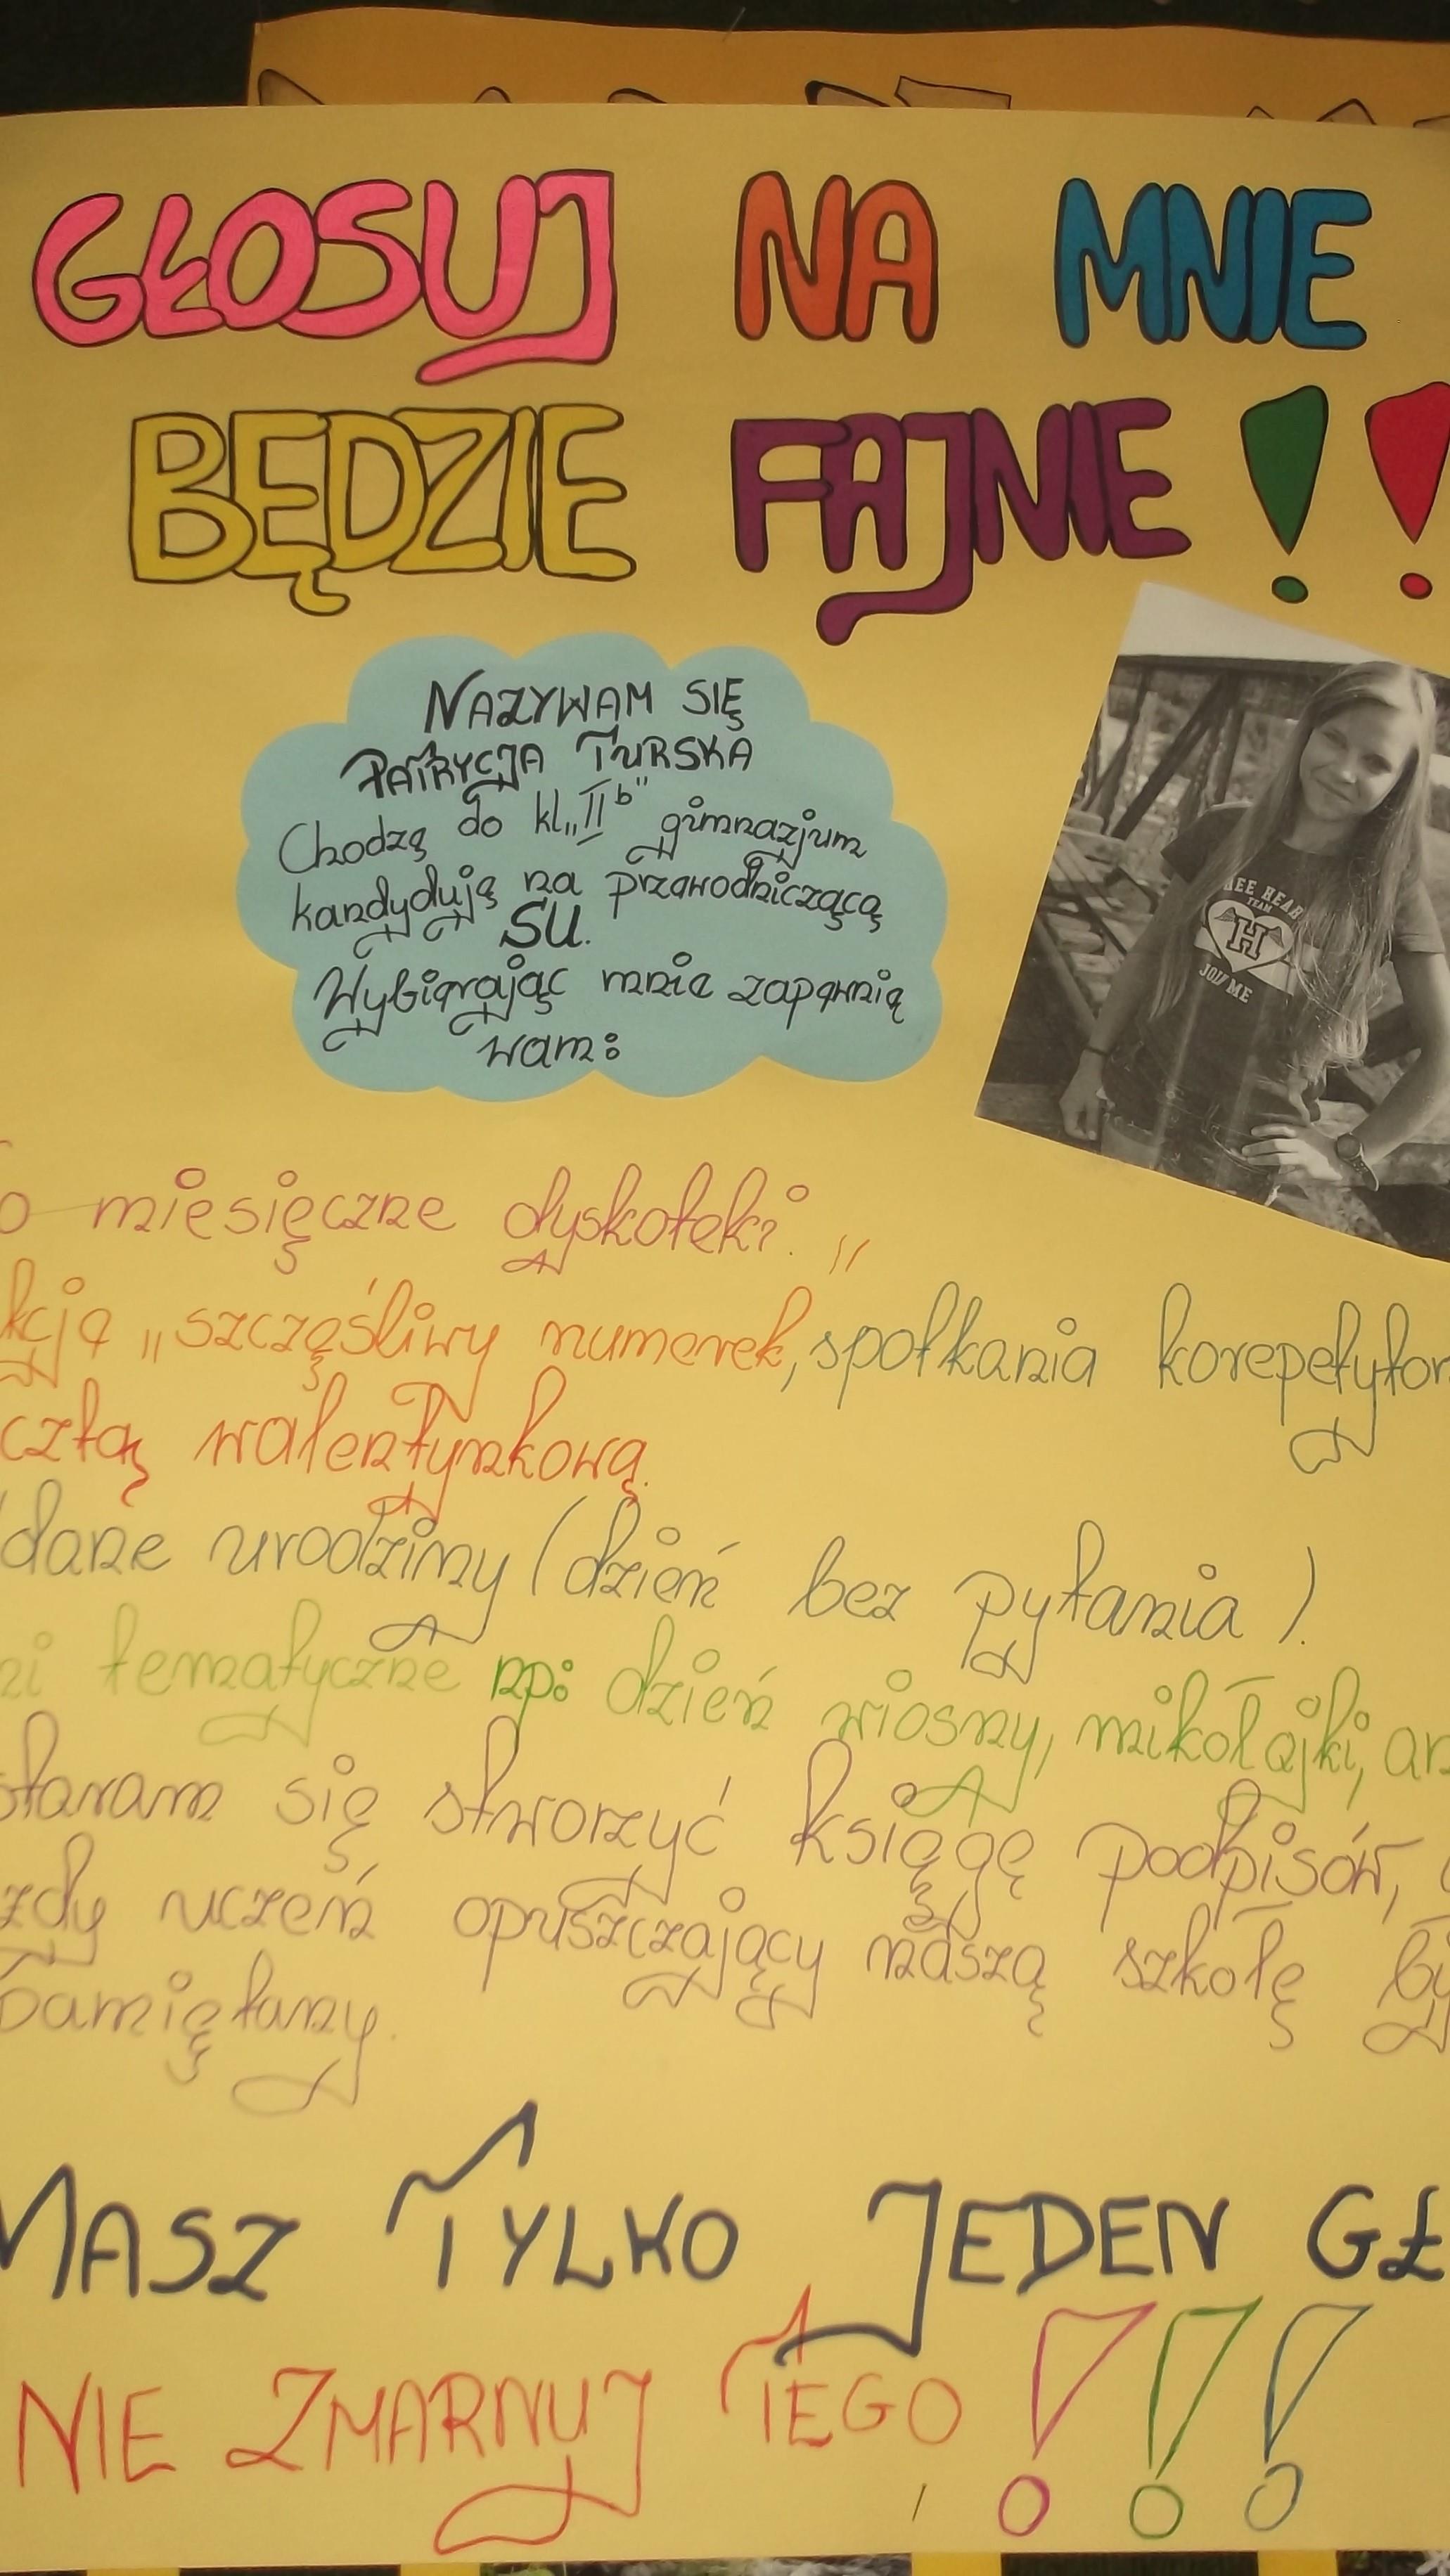 GŁOSUJ NA MNIE
BĘDZIE FAJNIE !!
NAZYWAM SIĘ
PATRYCJA TURSKA
Chodzę do kl „II b" gimnazjum
kandyduję na przewodniczącą
SU.
Wybierając mnie zapewnię
wam:
HREE HEAR
TEAM
H
JOIN ME
o miesięczne dyskoteki.
kcję „szczęśliwy numerek", spotkania korepetytor
cztę walentynkową.
dane urodziny (dzień bez pytania).
ni tematyczne np: dzień wiosny, mikołajki, an
staram się stworzyć księgę podpisów,
żdy uczeń opuszczający naszą szkołę by
pamiętany.
MASZ TYLKO JEDEN GŁ
NIE ZMARNUJ TEGO !!!